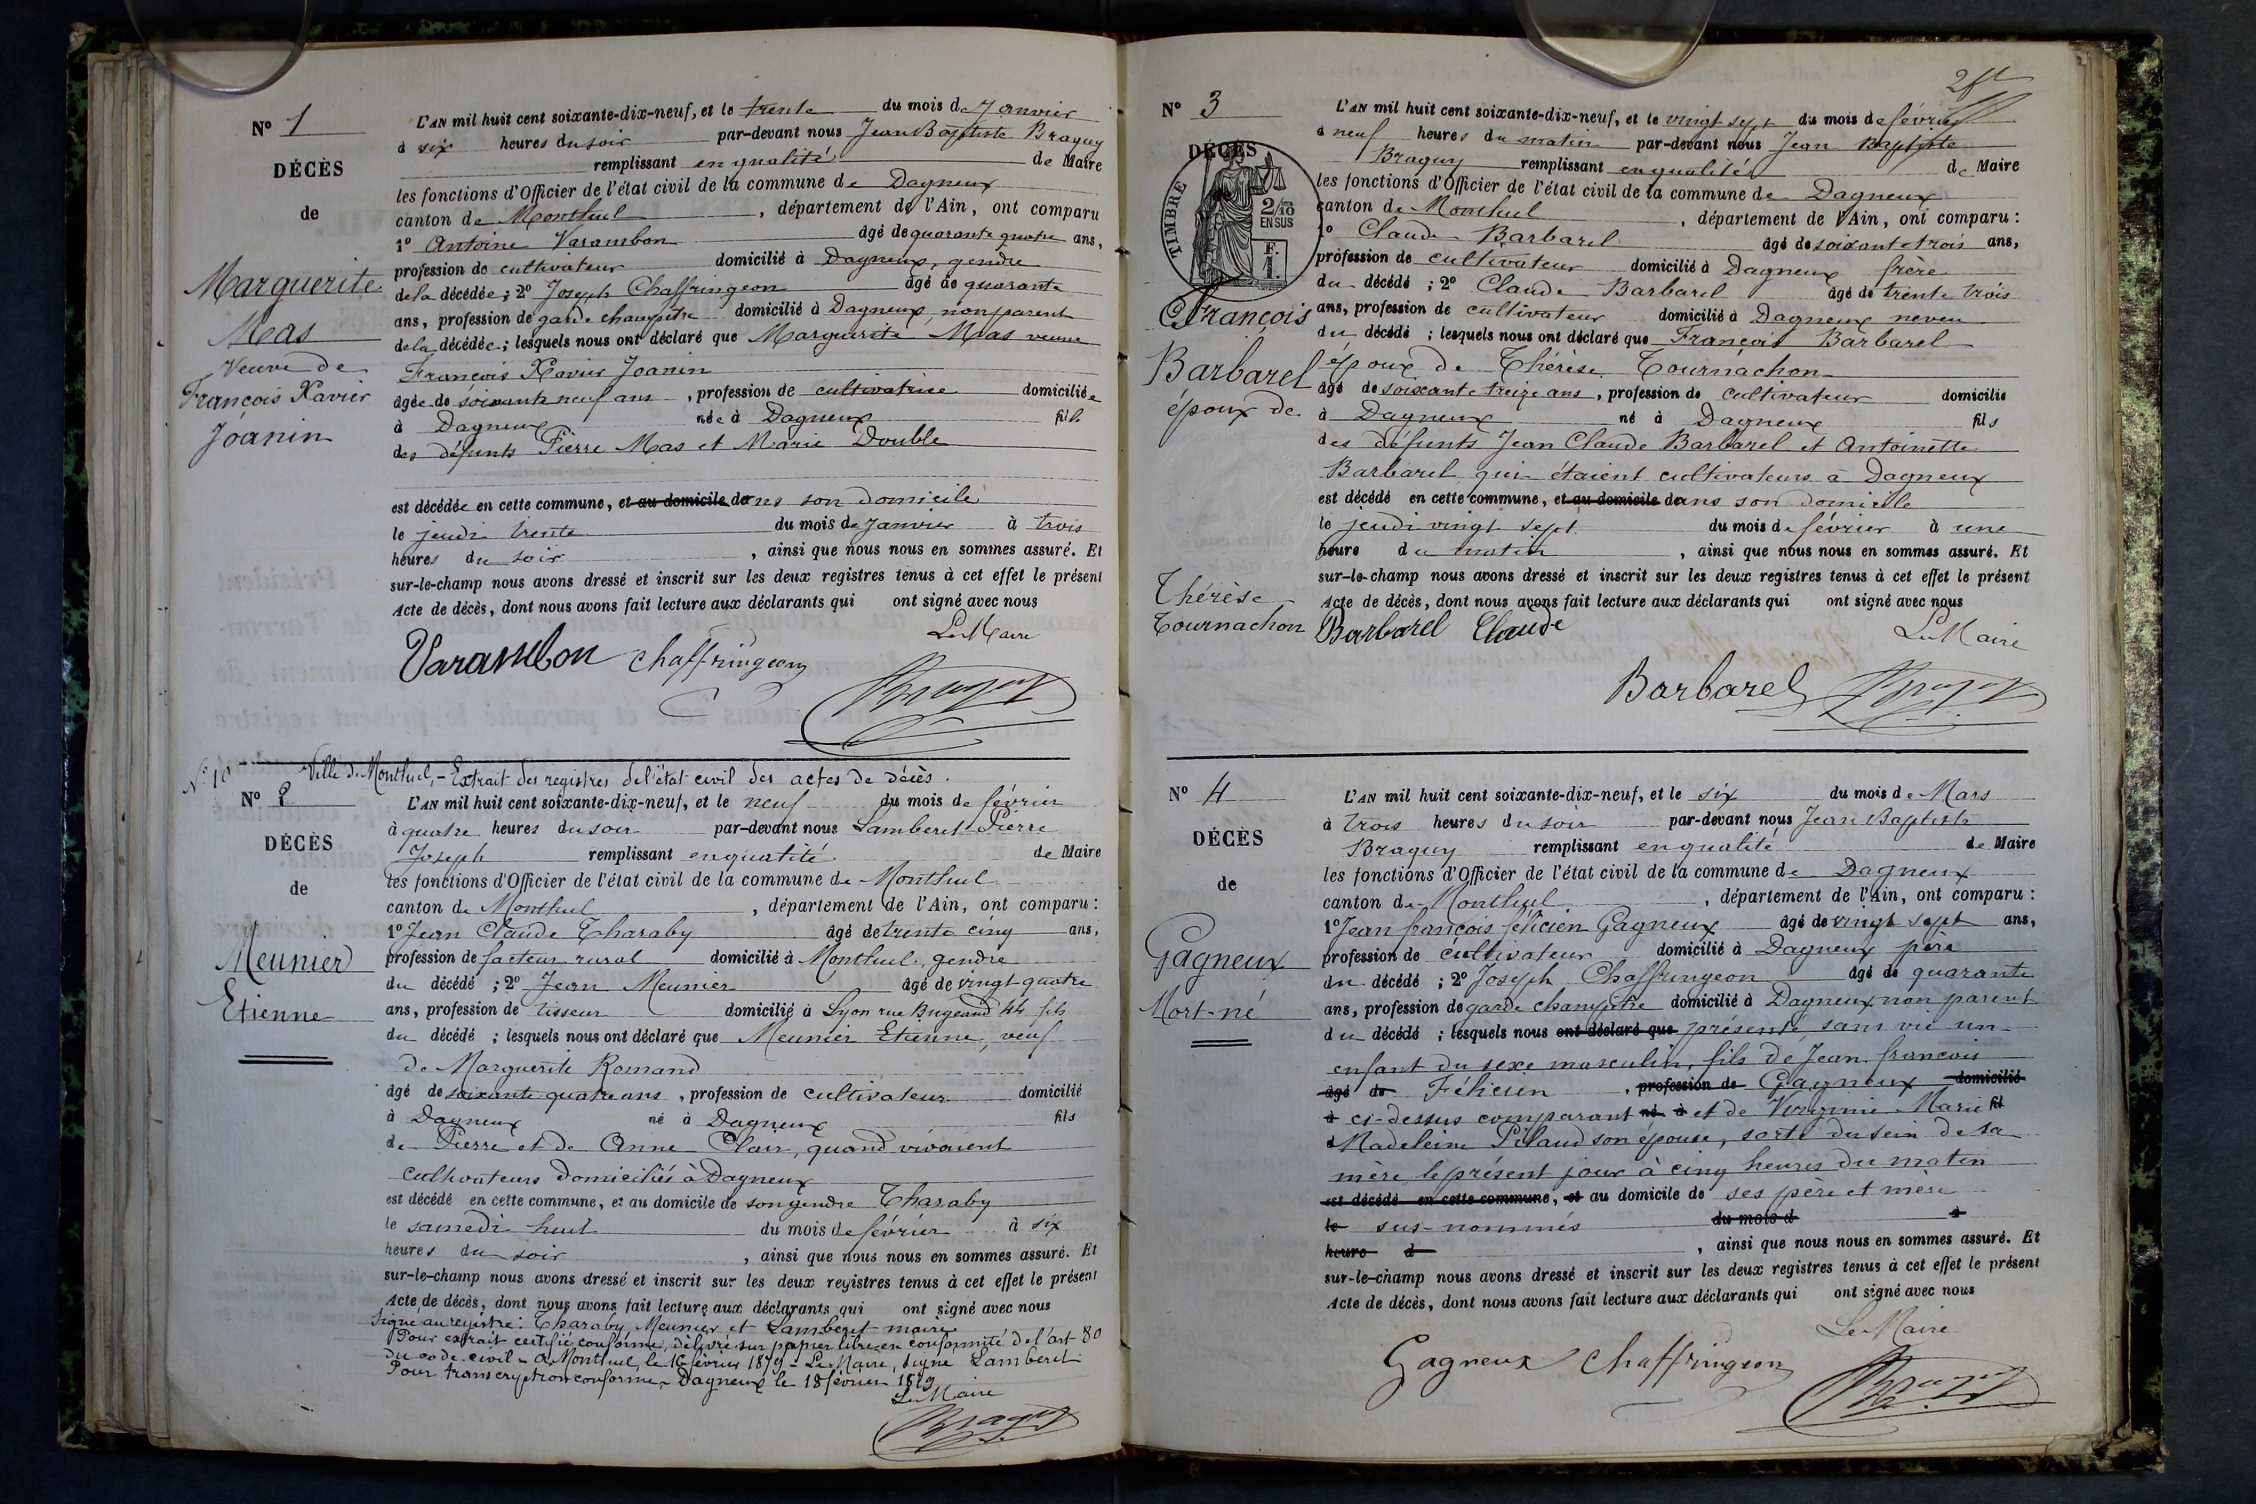 N° 1
DÉCÈS
de
Marguerite
Mas
Veuve de
François Xavier
Joanin
L'AN mil huit cent soixante-dix-neuf, et le trente du mois de Janvier
à six heures du soir par-devant nous Jean Baptiste Braguy
remplissant en qualité de Maire
les fonctions d'Officier de l'état civil de la commune de Dagneux
canton de Montluel, département de l'Ain, ont comparu
1° Antoine Varambon âgé de quarante quatre ans,
profession de cultivateur domicilié à Dagneux, gendre
de la décédée; 2° Joseph Chaffringeon âgé de quarante
ans, profession de garde champêtre domicilié à Dagneux, non parent
de la décédée; lesquels nous ont déclaré que Marguerite Mas veuve
François Xavier Joanin
âgée de soixante neuf ans, profession de cultivatrice domiciliée
à Dagneux née à Dagneux fille
des défunts Pierre Mas et Marie Double
est décédée en cette commune, et au domicile dans son domicile
le jeudi trente du mois de Janvier à trois
heures du soir, ainsi que nous nous en sommes assuré. Et
sur-le-champ nous avons dressé et inscrit sur les deux registres tenus à cet effet le présent
Acte de décès, dont nous avons fait lecture aux déclarants qui ont signé avec nous
Le Maire
Varambon Chaffringeon
Braguy
N° 10
Ville de Montluel, - Extrait des registres de l'état civil des actes de décès.
N° 2
DÉCÈS
de
Meunier
Etienne
L'AN mil huit cent soixante-dix-neuf, et le neuf du mois de février
à quatre heures du soir par-devant nous Lamberet Pierre
Joseph remplissant en qualité de Maire
les fonctions d'Officier de l'état civil de la commune de Montluel
canton de Montluel, département de l'Ain, ont comparu:
1° Jean Claude Tharaby âgé de trente cinq ans,
profession de facteur rural domicilié à Montluel, gendre
du décédé; 2° Jean Meunier âgé de vingt quatre
ans, profession de tisseur domicilié à Lyon rue Bugeaud 44 fils
du décédé; lesquels nous ont déclaré que Meunier Etienne, veuf
de Marguerite Romand
âgé de soixante quatre ans, profession de cultivateur domicilié
à Dagneux né à Dagneux fils
de Pierre et de Anne Clair, quand vivaient
cultivateurs domiciliés à Dagneux
est décédé en cette commune, et au domicile de son gendre Tharaby
le samedi huit du mois de février à six
heures du soir, ainsi que nous nous en sommes assuré. Et
sur-le-champ nous avons dressé et inscrit sur les deux registres tenus à cet effet le présent
Acte de décès, dont nous avons fait lecture aux déclarants qui ont signé avec nous
Signé au registre: Tharaby, Meunier et Lamberet maire
Pour extrait certifié conforme, délivré sur papier libre en conformité de l'art 80
du code civil - à Montluel, le 16 février 1879 - Le Maire, signé Lamberet
Pour transcription conforme, Dagneux le 18 février 1879
Le Maire
Braguy
N° 3
DÉCÈS
TIMBRE
2/10
EN SUS
F.
1.
François
Barbarel
époux de
Thérèse
Tournachon
L'AN mil huit cent soixante-dix-neuf, et le vingt sept du mois de février
à neuf heures du matin par-devant nous Jean Baptiste
Braguy remplissant en qualité de Maire
les fonctions d'Officier de l'état civil de la commune de Dagneux
canton de Montluel, département de l'Ain, ont comparu:
1° Claude Barbarel âgé de soixante trois ans,
profession de cultivateur domicilié à Dagneux frère
du décédé; 2° Claude Barbarel âgé de trente trois
ans, profession de cultivateur domicilié à Dagneux neveu
du décédé; lesquels nous ont déclaré que François Barbarel
époux de Thérèse Tournachon
âgé de soixante treize ans, profession de cultivateur domicilié
à Dagneux né à Dagneux fils
des défunts Jean Claude Barbarel et Antoinette
Barbarel qui étaient cultivateurs à Dagneux
est décédé en cette commune, et au domicile dans son domicile
le jeudi vingt sept du mois de février à une
heure du matin, ainsi que nous nous en sommes assuré. Et
sur-le-champ nous avons dressé et inscrit sur les deux registres tenus à cet effet le présent
Acte de décès, dont nous avons fait lecture aux déclarants qui ont signé avec nous
Barbarel Claude Le Maire
Barbarel Braguy
N° 4
DÉCÈS
de
Gagneux
Mort-né
L'AN mil huit cent soixante-dix-neuf, et le six du mois de Mars
à trois heures du soir par-devant nous Jean Baptiste
Braguy remplissant en qualité de Maire
les fonctions d'Officier de l'état civil de la commune de Dagneux
canton de Montluel, département de l'Ain, ont comparu:
1° Jean françois félicien Gagneux âgé de vingt sept ans,
profession de cultivateur domicilié à Dagneux père
du décédé; 2° Joseph Chaffringeon âgé de quarante
ans, profession de garde champêtre domicilié à Dagneux non parent
du décédé; lesquels nous ont déclaré que présenté sans vie un
enfant du sexe masculin, fils de Jean françois
âgé de Félicien, profession de Gagneux domicilié
à ci-dessus comparant né à et de Virginie Marie fil
d Madeleine Pilaud son épouse, sorti du sein de sa
mère le présent jour à cinq heures du matin
est décédé en cette commune, et au domicile de ses père et mère
le sus-nommés du mois d à
heure d, ainsi que nous nous en sommes assuré. Et
sur-le-champ nous avons dressé et inscrit sur les deux registres tenus à cet effet le présent
Acte de décès, dont nous avons fait lecture aux déclarants qui ont signé avec nous
Le Maire
Gagneux Chaffringeon
Braguy